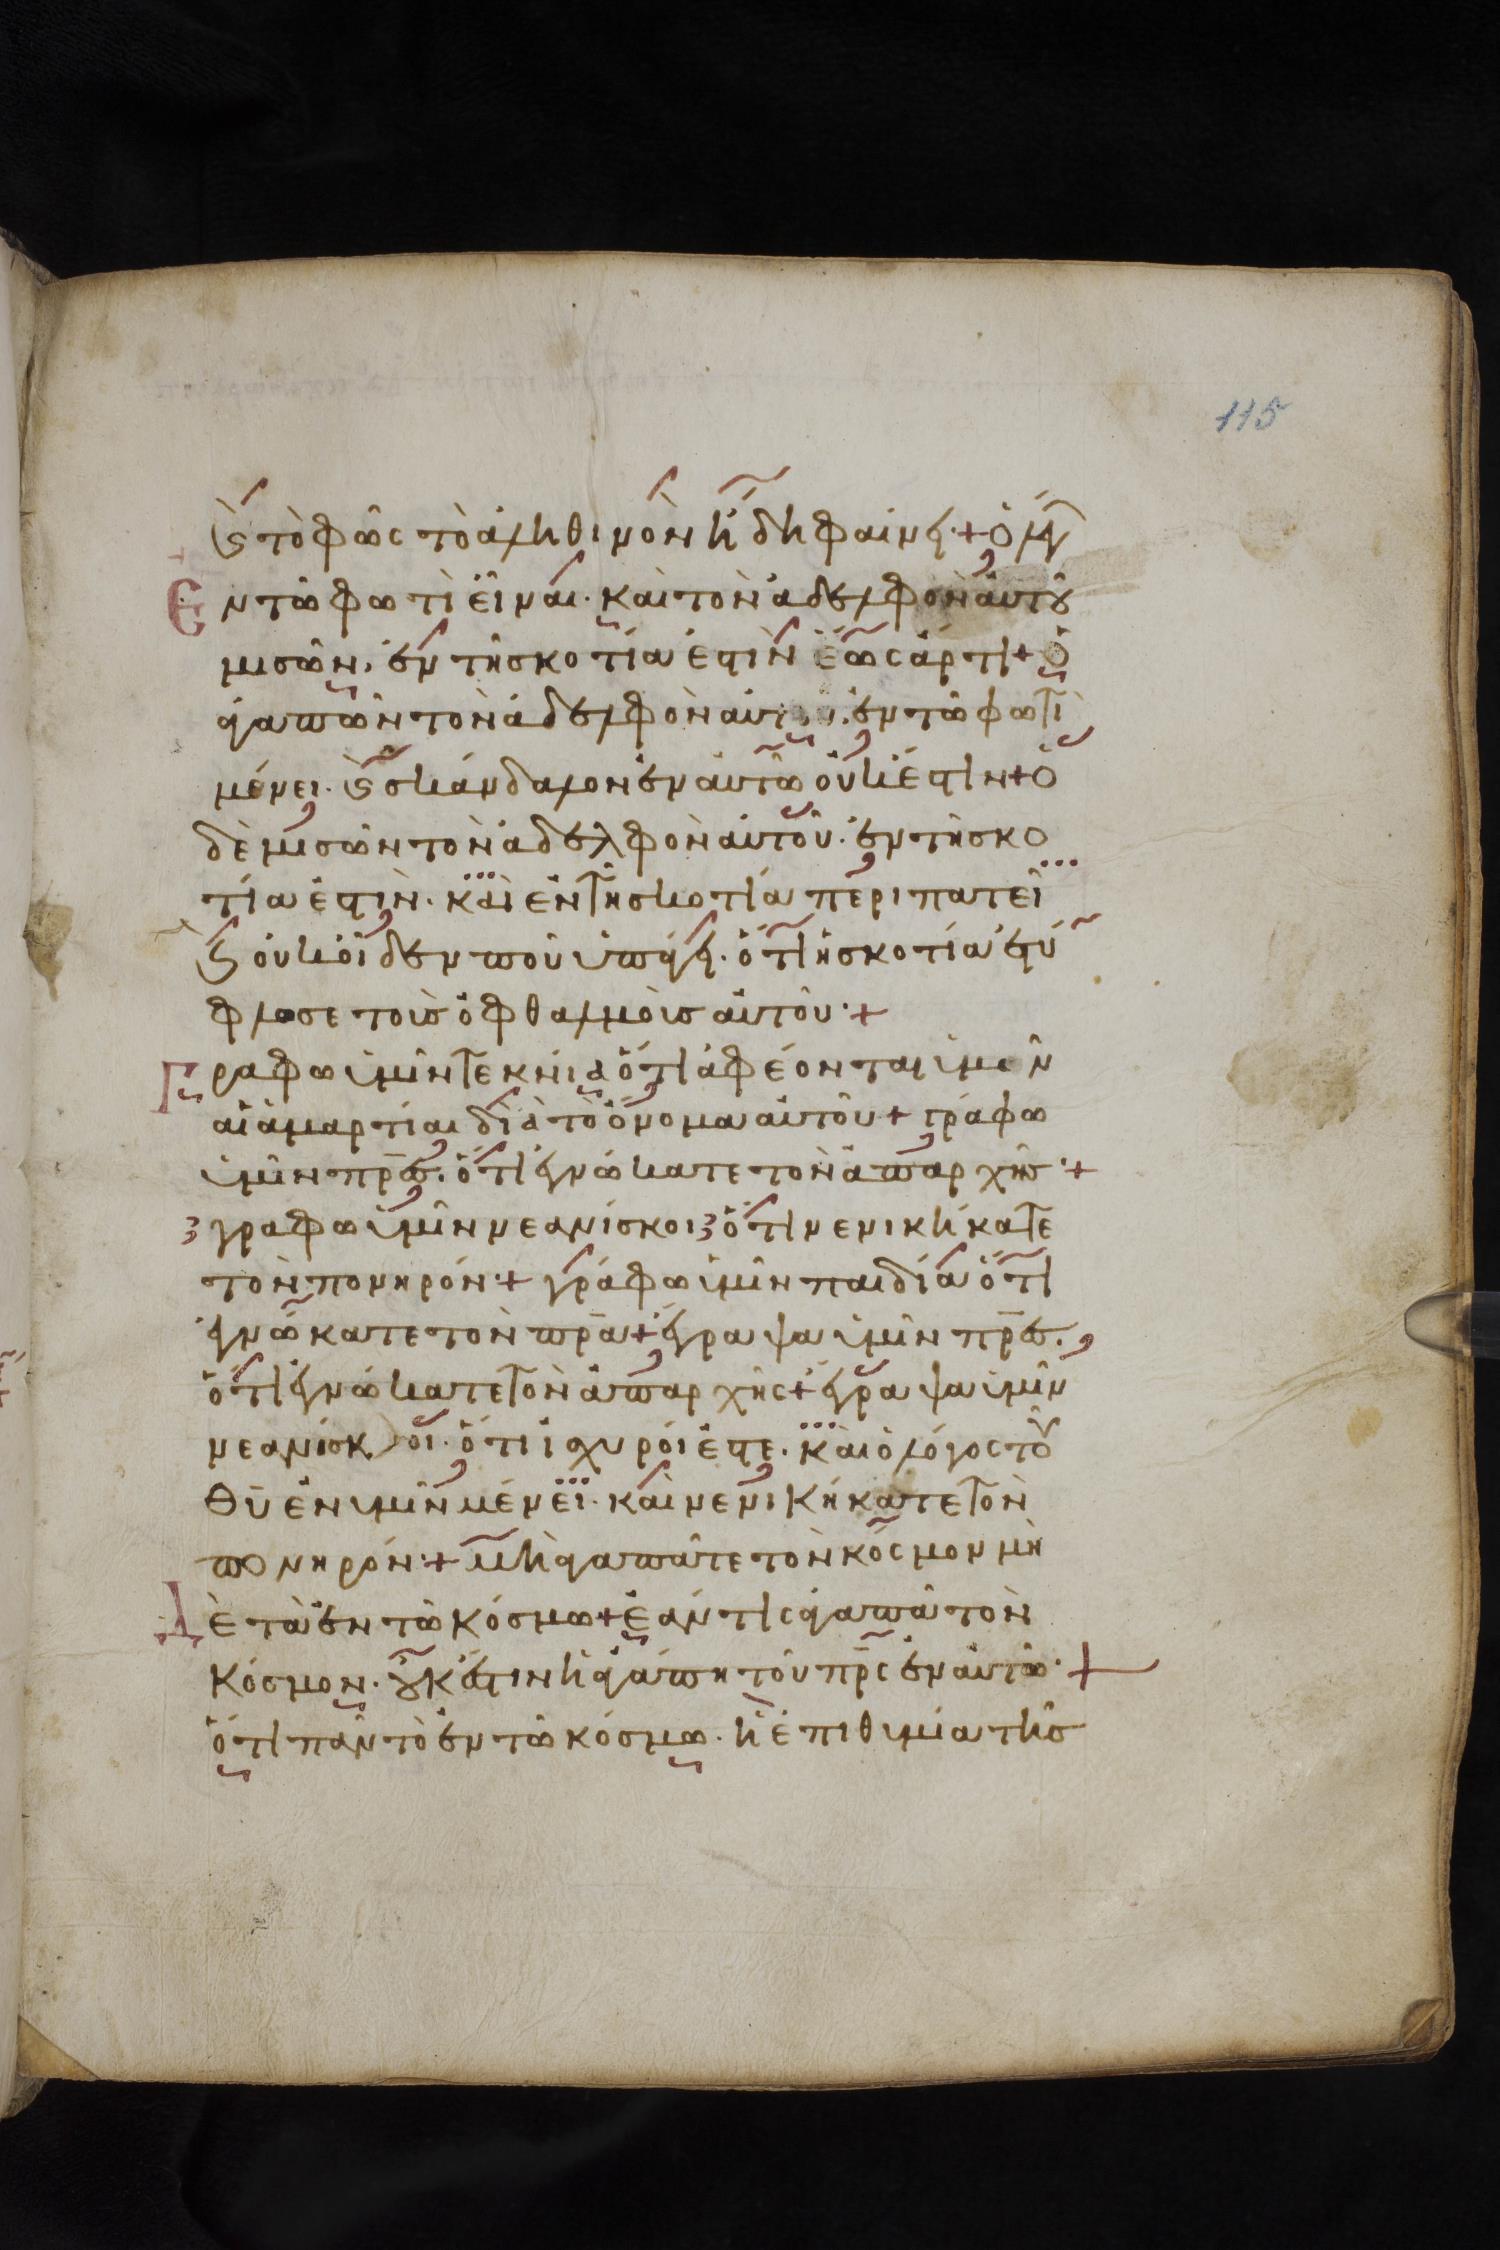 115
ϗ τὸ φῶς τὸ ἀληθινὸν ἤδη φαίνει + ὁ λέγων
Ἐν τῶ φωτὶ εἶναι· καὶ τὸν ἀδελφὸν αὐτοῦ
μισῶν, ἐν τῆ σκοτία ἐστὶν ἕως ἄρτι + ὁ
ἀγαπῶν τὸν ἀδελφὸν αὐτοῦ. ἐν τῶ φωτὶ
μένει. ϗ σκάνδαλον ἐν αὐτῶ οὐκ ἔστιν + ὁ
δὲ μισῶν τὸν ἀδελφὸν αὐτοῦ. ἐν τῆ σκο
τία ἐστὶν. καὶ ἐν τῆ σκοτία περιπατεῖ
ϗ οὐκ οἶδεν ποῦ ὑπάγει. ὅτι ἡ σκοτία ἐτύ
φλωσε τοὺς ὀφθαλμοὺς αὐτοῦ· +
Γραφω ὑμῖν τεκνία ὅτι ἀφέονται ὑμῶν
αἱ ἁμαρτίαι διὰ τὸ ὄνομα αὐτοῦ + γράφω
ὑμῖν πρ̅ες. ὅτι ἐγνώκατε τὸν ἀπαρχῆς· +
γραφω ὑμῖν νεανίσκοι ὅτι νενικήκατε
τὸν πονηρόν· + γράφω ὑμῖν παιδία ὅτι
ἐγνώκατε τὸν πρ̅α + ἔγραψα ὑμῖν πρ̅ες.
ὅτι ἐγνώκατε τὸν ἀπαρχῆς + ἔγραψα ὑμῖν
νεανίσκοι. ὅτι ἰσχυροί ἐστε. καὶ ὁ λόγος τοῦ
θ̅υ̅ ἐν ὑμῖν μένει. καὶ νενικήκατε τὸν
πονηρόν· + μὴ ἀγαπᾶτε τὸν κόσμον μὴ
Δὲ τὰ ἐν τῶ κόσμω + ἐαν τις ἀγαπᾶ τὸν
κόσμον. οὐκ ἔστιν ἡ ἀγάπη τοῦ πρ̅ς ἐν αὐτῶ· +
ὅτι παν τὸ ἐν τῶ κόσμω. ἡ ἐπιθυμία τῆς